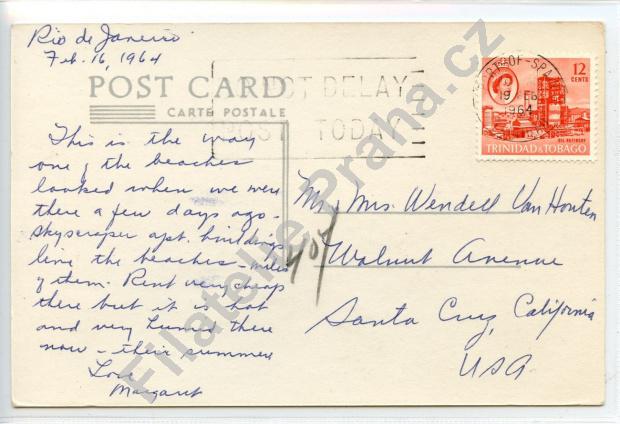 Rio de Janeiro
Feb. 16, 1964
POST CARD
CARTE POSTALE
NOT DELAY
POST TODAY
PORT-OF-SPAIN
19 FE
1964
12
CENTS
OIL REFINERY
TRINIDAD & TOBAGO
This is the way
one of the beaches
looked when we were
there a few days ago -
skyscraper apt. buildings
line the beaches - miles
of them. Rent very cheap
there but it is hot
and very humid there
now - their summer
Love
Margaret
Mr. Mrs. Wendell Van Houten
Walnut Avenue
Santa Cruz, California
USA
407
Filatelie-Praha.cz